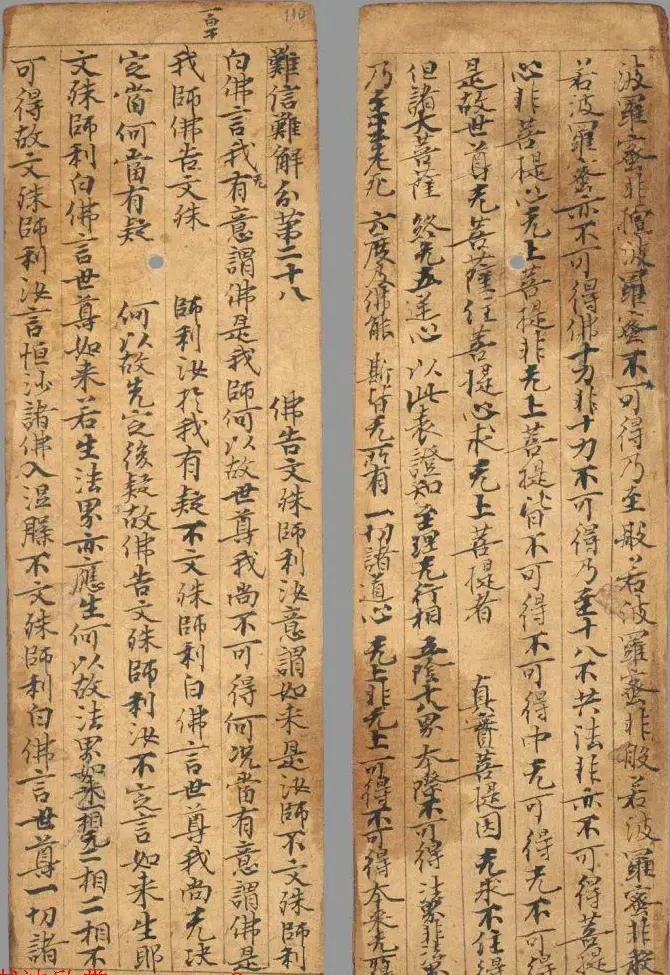 波羅蜜非檀波羅蜜不可得乃至般〻若波羅蜜非般若波羅蜜非般
若波羅蜜亦不可得佛十力非十力不可得乃至十八不共法非亦不可得菩提
心非菩提心无上菩提非无上菩提皆不可得不可得中无可得无不可得
是故世尊无菩薩往菩提心求无上菩提者 真實菩提因 无求不住得
但諸大菩薩 終无五逆心 以此表證知 至理无行相 五陰十八界 本際不可得 法界非法界
乃至老死 六度及佛能 斯皆无所有 一切諸道心 无上非无上 可得不可得 本来无所
110
一百十
難信難解分第二十八 佛告文殊師利汝意謂如来是汝師不文殊師利
白佛言我有无意謂佛是我師何以故世尊我尚不可得何况當有意謂佛是
我師佛告文殊 師利汝於我有疑不文殊師利白佛言世尊我尚无决
定當何當有疑 何以故先定後疑故佛告文殊師利汝不定言如来生耶
文殊師利白佛言世尊如来若生法界亦應生何以故法界如来一相无二相二相不
可得故文殊師利汝言恒沙諸佛入涅槃不文殊師利白佛言世尊一切諸